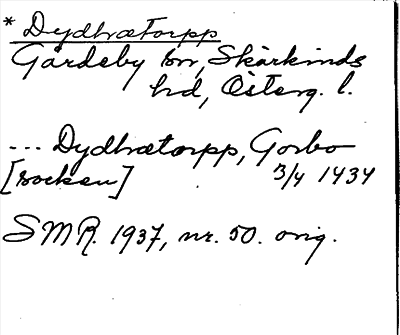 * Dydhætorpp
Gårdeby sn, Skärkinds
hd, Österg. l.
... Dydhætorpp, Gorbo
[socken] 3/4 1434
SMR. 1937, nr. 50. orig.